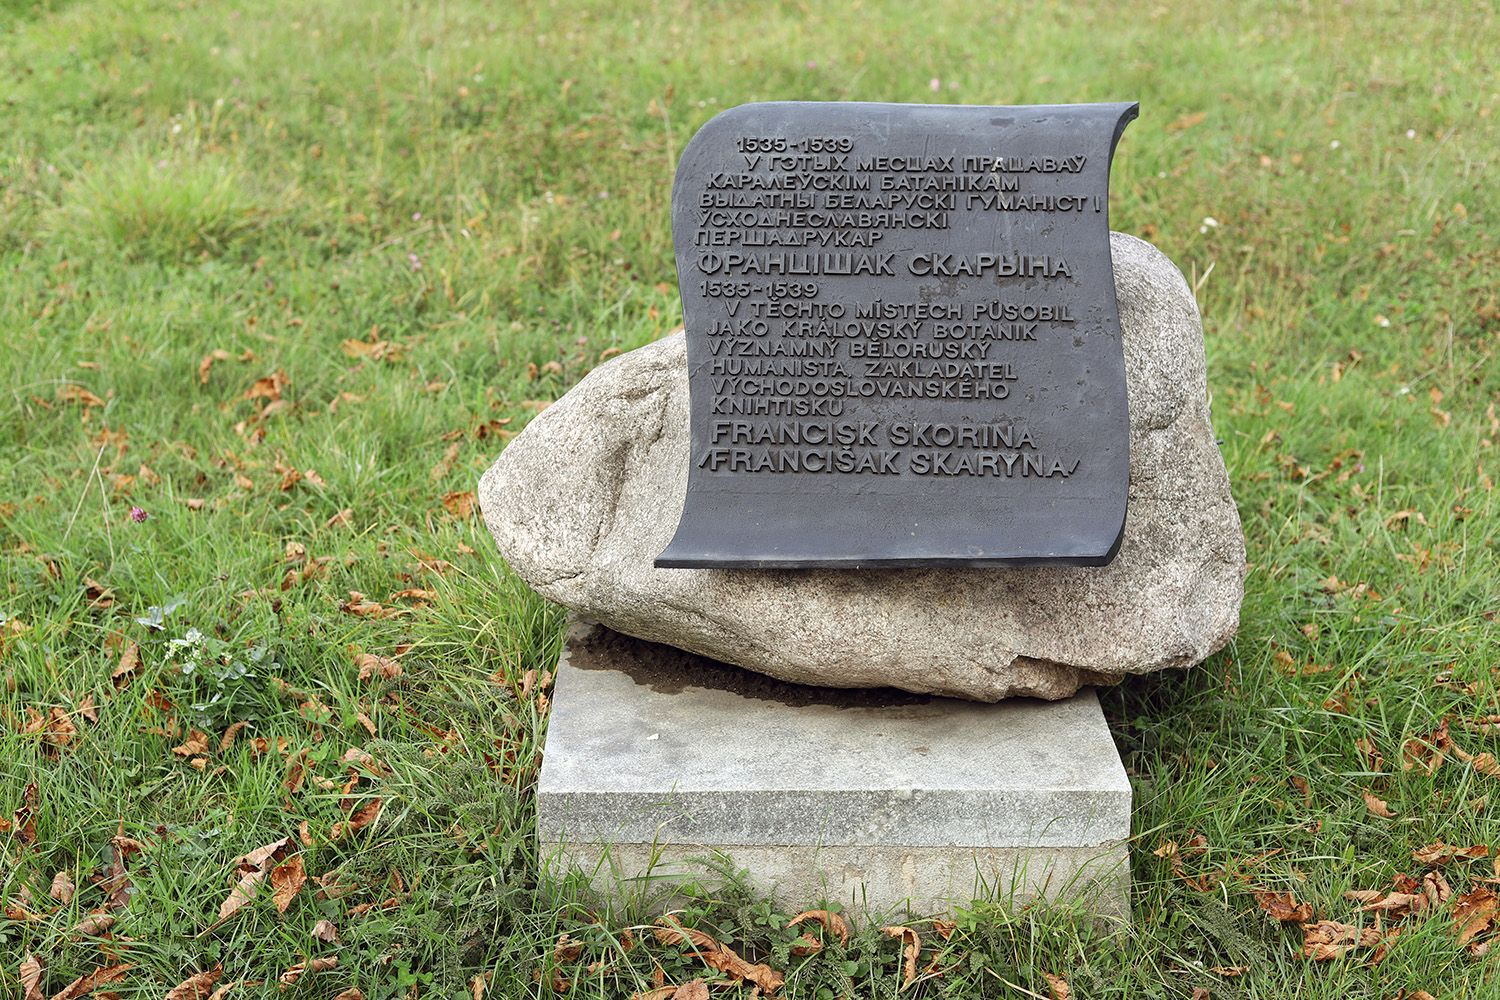 1535-1539
У ГЭТЫХ МЕСЦАХ ПРАЦАВАЎ
КАРАЛЕЎСКІМ БАТАНІКАМ
ВЫДАТНЫ БЕЛАРУСКІ ГУМАНІСТ І
ЎСХОДНЕСЛАВЯНСКІ
ПЕРШАДРУКАР
ФРАНЦІШАК СКАРЫНА
1535-1539
V TĚCHTO MÍSTECH PŮSOBIL
JAKO KRÁLOVSKÝ BOTANIK
VÝZNAMNÝ BĚLORUSKÝ
HUMANISTA, ZAKLADATEL
VÝCHODOSLOVANSKÉHO
KNIHTISKU
FRANCISK SKORINA
/FRANCIŠAK SKARYNA/